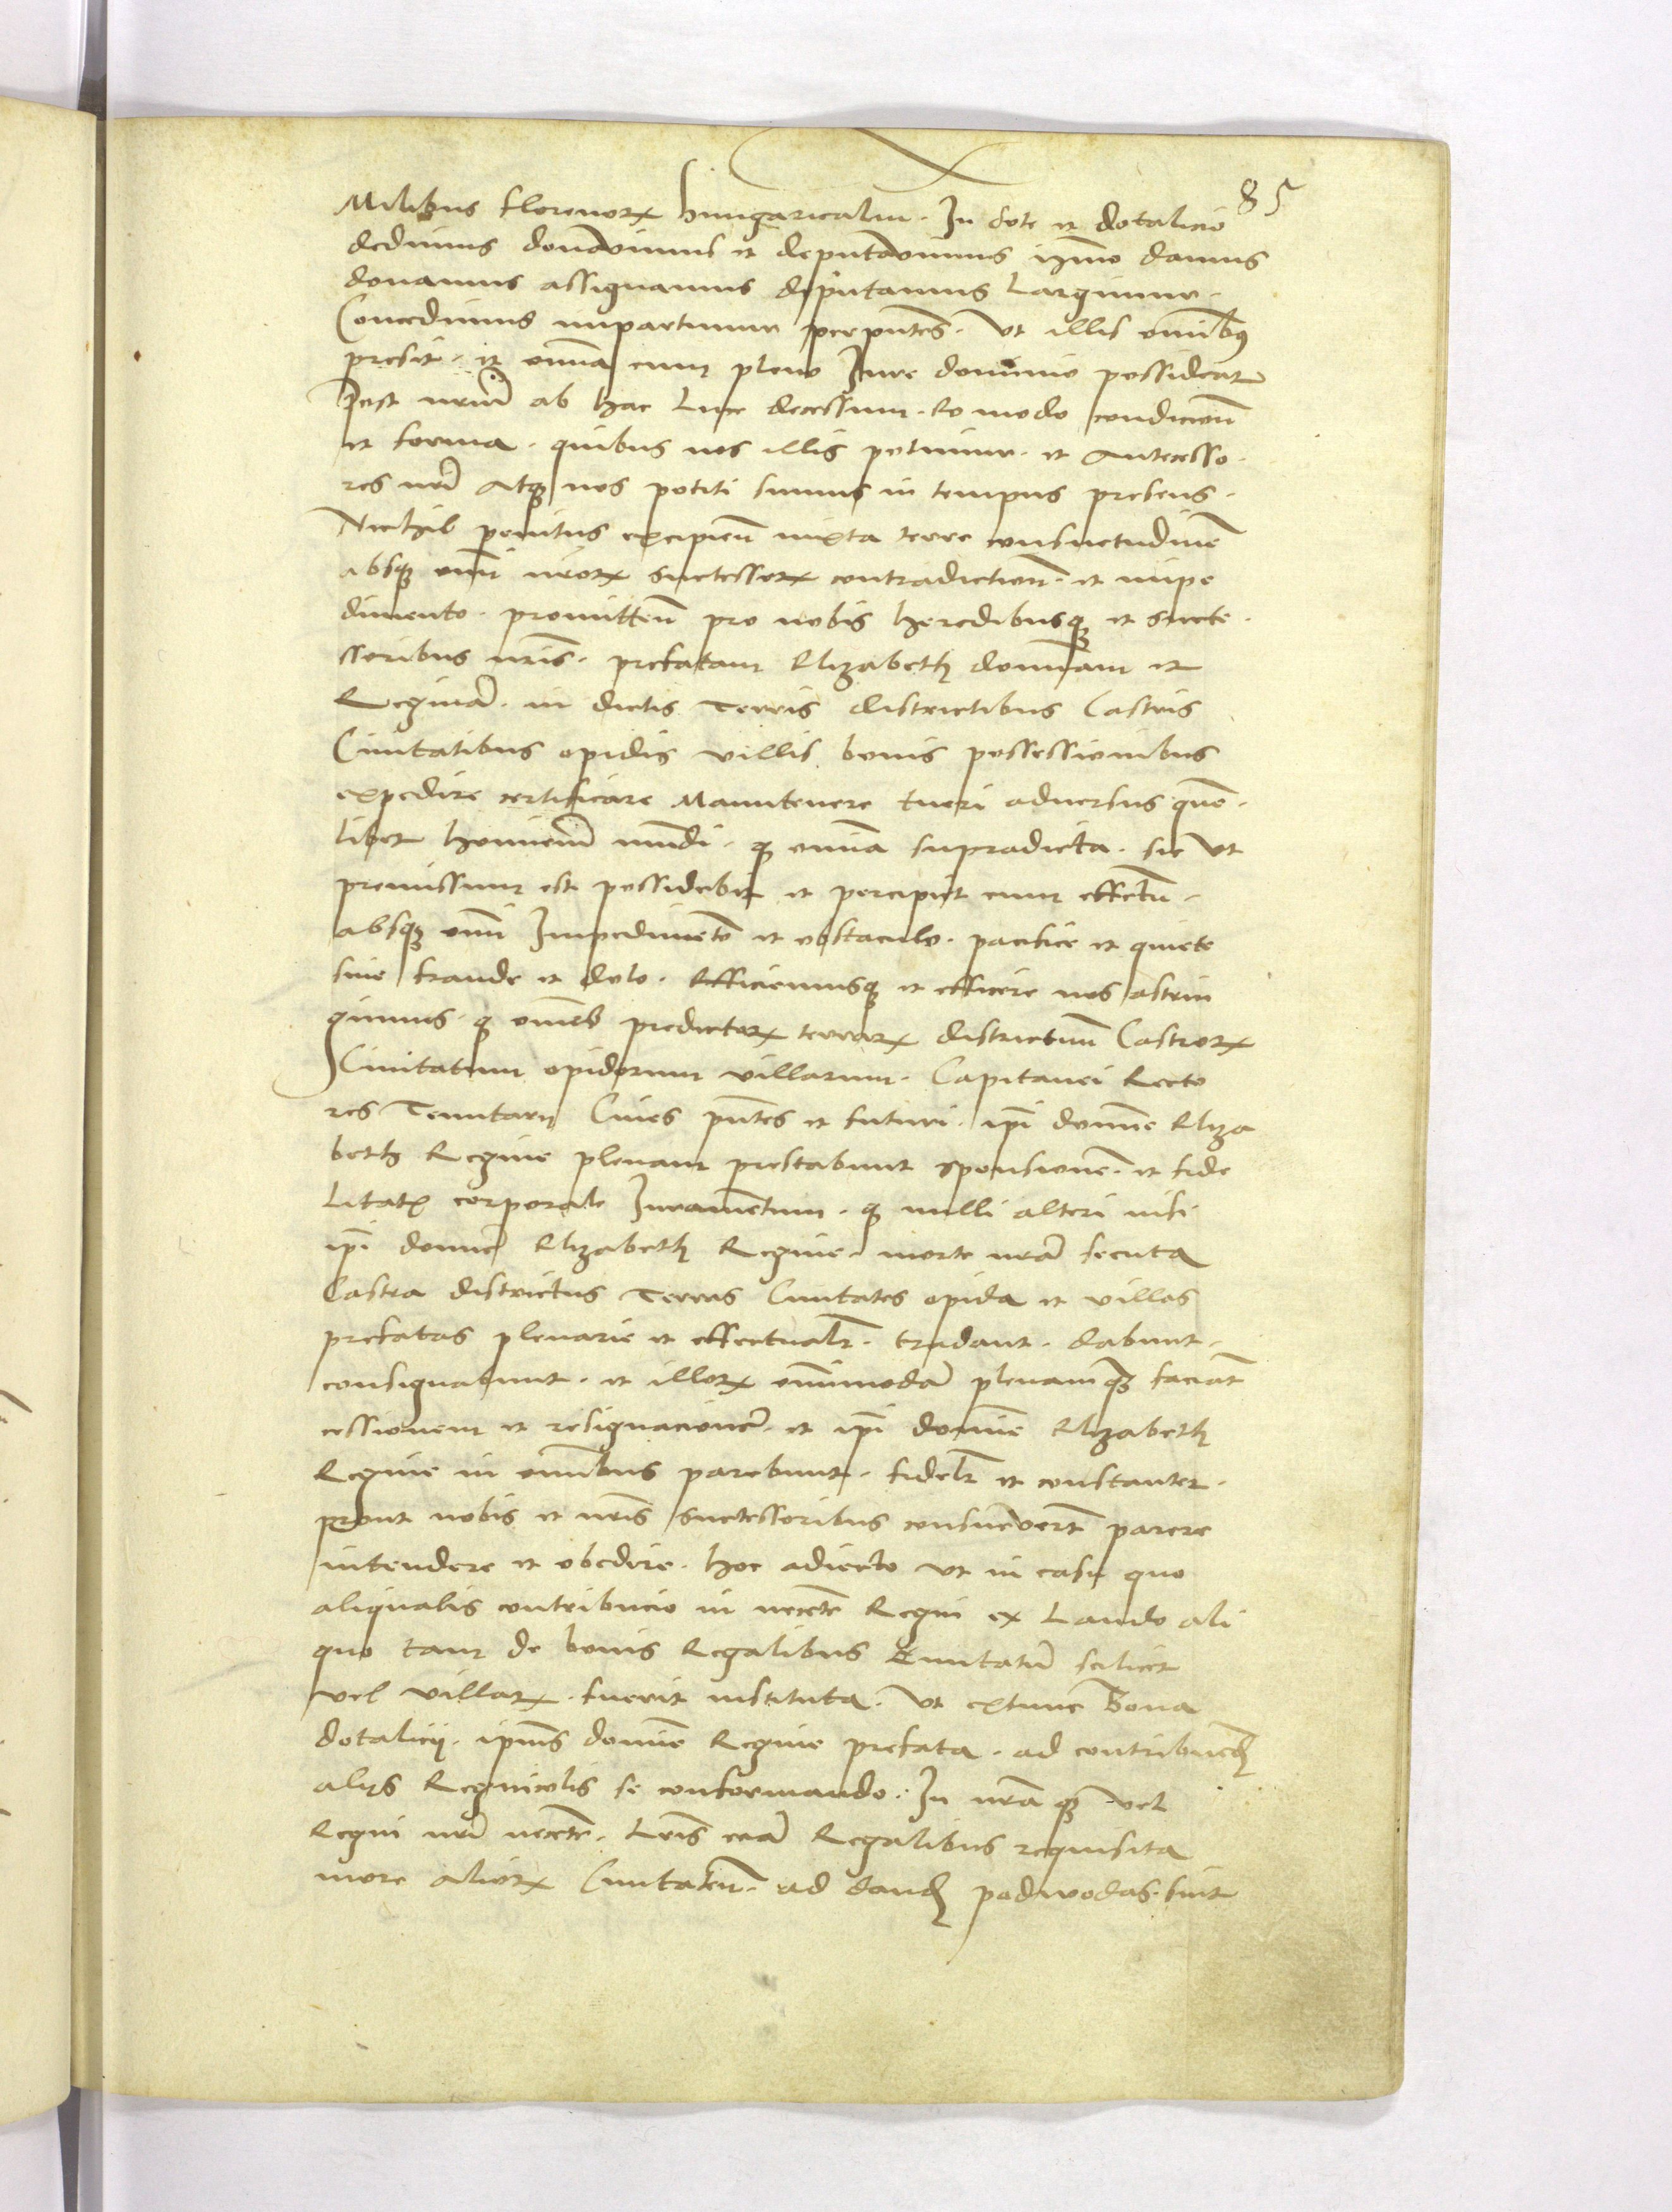 85
Milibus florenorꝝ hungaricaliu. In dote et dotalicio
dedimus donavimus et deputavimus ymmo damus
donamus assignamus deputamus Largimur.
Concedimus impartimur per pntes. Ut illis omibus
presit. et omnia cum pleno Iure dominio possideat
Post nrum ab hac Luce decessum. Eo modo condicioni
et forma. quibus nos illis potimur. et Antecesso.
res nri Atqꝫ nos potiti sumus in tempus presens.
Nichil penitus excipien iuxta terre consuetudinem
absqꝫ omni nrorꝝ Successorꝝ contradiction. et impe
dimento. promitten pro nobis heredibusqꝫ et Succe.
ssoribus nris. prefatam Elizabeth dominam et
Reginam. in dictis Terris districtibus Castris
Civitatibus opidis villis bonis possessionibus
expedire certificare Manutenere tueri adversus quem.
libet hominem mundi. qꝫ omnia supradicta. sic Ut
premissum est possidebit et percipiet cum effectu.
absqꝫ omni Impedimento et obstaculo. pacifice et quiete
sine fraude et dolo. Efficiemusqꝫ et efficere nos astrin
gimus. qꝫ omnes predictorꝝ terrarꝝ districtuum Castrorꝝ
Civitatum opidorum villarum. Capitanei Recto
res Tenutarij Cives pntes et futuri. ipi domine Eliza
beth Regine plenam prestabunt sponsionem. et fide
Litatis corporale Iuramentum. qꝫ nulli alteri nisi
ipi domine Elizabeth Regine. morte nra secuta
Castra districtus Terras Civitates opida et villas
prefatas plenarie et effectualr. tradant. dabunt.
consignabunt. et illorꝝ omnimodam plenamqꝫ faciant
cessionem et resignacionem. et ipi domine Elizabeth
Regine in omnibus parebunt. fidelr et constanter.
prout nobis et nris Successoribus consueverunt parere
intendere et obedire. hoc adiecto Ut in casu quo
aliqualis contribucio in necte Regni ex Laudo ali
quo tam de bonis Regalibus Civitatum scilicet
vel villarꝝ. fuerit instituta. Ut extunc Bona
dotalicij. ipius domine Regine prefata. ad contribuend
alijs Regnicolis se conformando. In nra qꝫ vel
Regni nri necte. Lris eciam Regalibus requisita
more aliorꝝ Civitatum. ad dand podwodas. sint